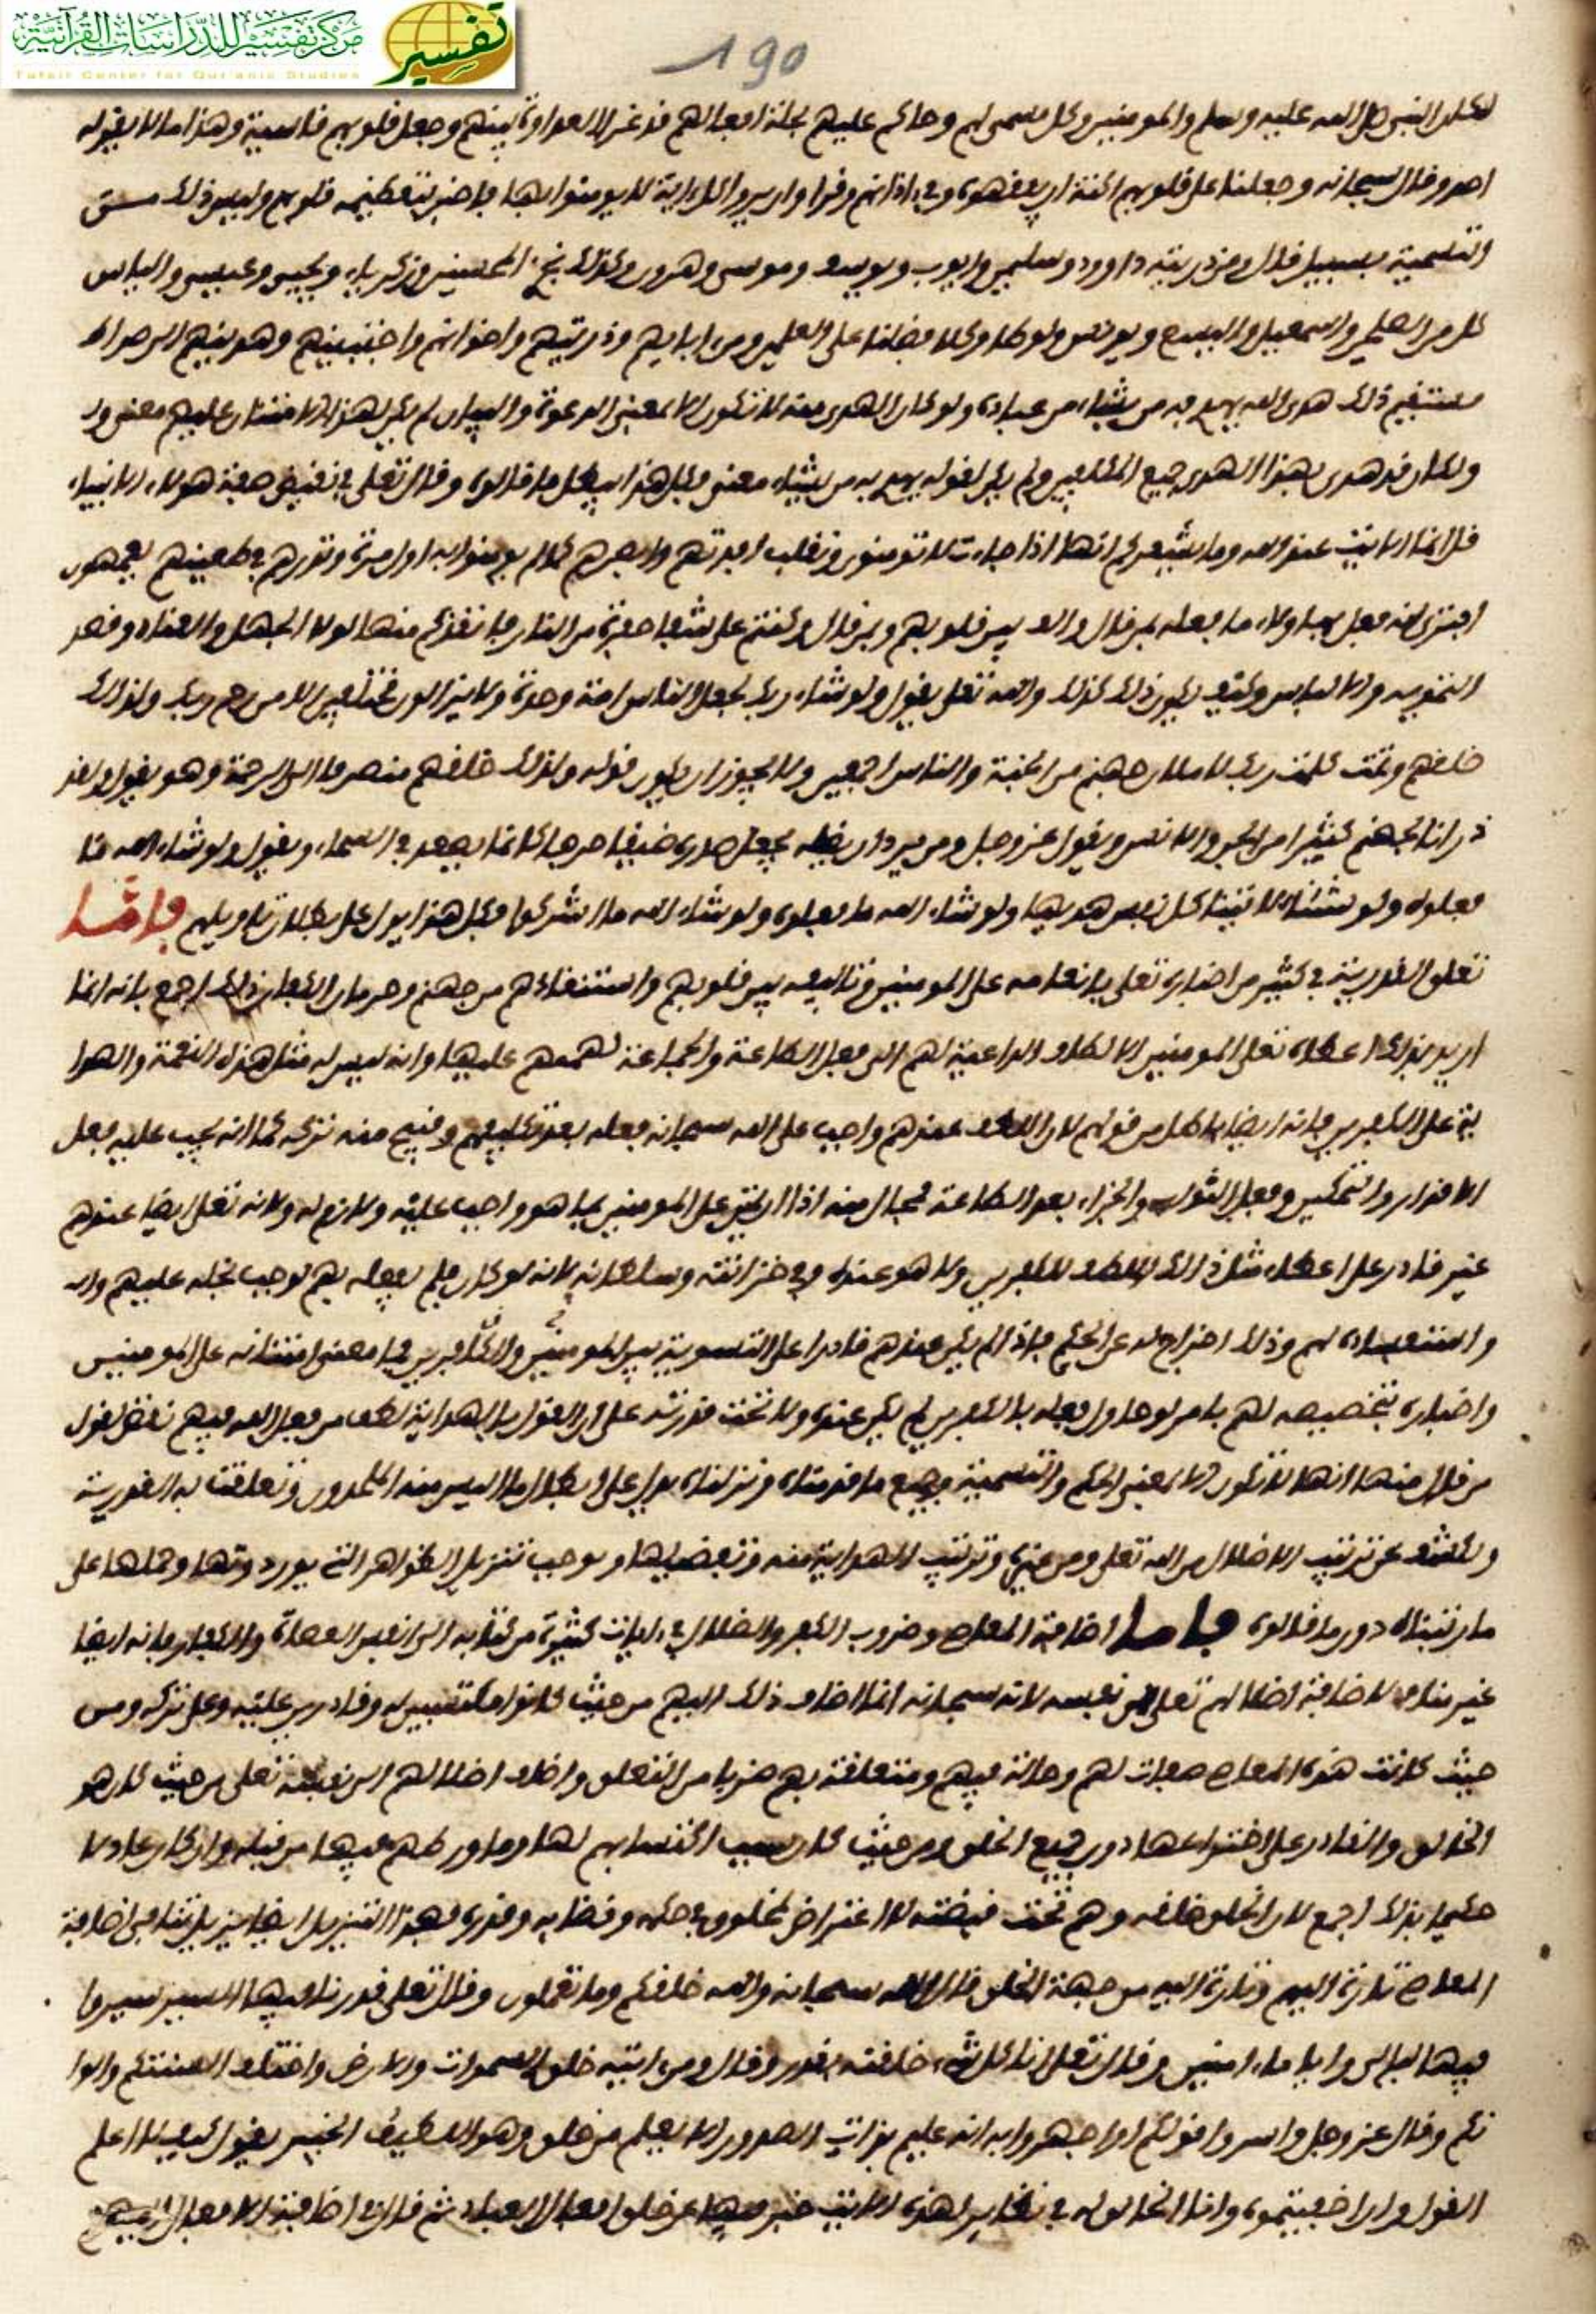 مركز تفسير للدراسات القرآنية
Tafsir Center for Qur'anic Studies
تفسير
190
لكان النبي صلى الله عليه وسلم والمومنين وكل مسمى لهم وحاكم عليهم بجملة افعالهم قد غرس العداوة بينهم وجعل قلوبهم قاسية وهذا ما لا يقوله
احد وقال سبحانه وجعلنا على قلوبهم اكنة ان يفقهوه وفي اذانهم وقرا وان يروا كل اية لا يومنوا بها فاخبر بتغطيته قلوبهم وليس ذلك من
التسمية بسبيل وقال ومن ذريته داوود وسليمن وايوب ويوسف وموسى وهرون وكذلك نجزي المحسنين وزكرياء ويحيى وعيسى والياس
كل من الصلحين واسمعيل واليسع ويونس ولوطا وكلا فضلنا على العلمين ومن ابايهم وذريتهم واخوانهم واجتبينهم وهدينهم الى صراط
مستقيم ذلك هدى الله يهدي به من يشاء من عباده ولو كان الهدى منه لا تكون الا بمعنى الدعوة والبيان لم يكن لهذا الامتنان عليهم معنى ولا
ولكان قد هدى بهذا الهدى جميع المكلفين ولم يكن لقوله يهدي به من يشاء معنى وكل هذا يبطل ما قالوه وقال تعلى في نقيض صفة هولاء الانبياء
قل انما الايت عند الله وما يشعركم انها اذا جاءت لا تومنون ونقلب افدتهم وابصرهم كما لم يومنوا به اول مرة ونذرهم في طغينهم يعمهون
افترى انه فعل بهاولاء ما فعله بمن قال والف بين قلوبهم وبمن قال وكنتم على شفا حفرة من النار فانقذكم منها لولا الجهل والعناد وقصد
التمويه والالباس وكيف يكون ذلك كذلك والله تعلى يقول ولو شاء ربك لجعل الناس امة وحدة ولا يزالون مختلفين الا من رحم ربك ولذلك
خلقهم وتمت كلمت ربك لاملان جهنم من الجنة والناس اجمعين ولا يجوز ان يكون قوله ولذلك خلقهم منصرفا الى الرحمة وهو يقول ولقد
ذرانا لجهنم كثيرا من الجن والانس ويقول عز وجل ومن يرد ان يضله يجعل صدره ضيقا حرجا كانما يصعد في السماء ويقول ولو شاء الله ما
فعلوه ولو شئنا لاتينا كل نفس هديها ولو شاء الله ما فعلوه ولو شاء الله ما اشركوا فكل هذا يدل على بطلان تاويلهم فاما
تعلق القدرية في كثير من اخباره تعلى بانعامه على المومنين وتاليفه بين قلوبهم واستنقاذهم من جهنم وحرمان الكفار ذلك اجمع بانه انما
اريد بذلك اعطاه تعلى المومنين الالطاف الداعية لهم الى فعل الطاعة والجماعة لهم عليها وانه ليس له مثل هذه النعمة والهدا
ية على الكفرين فانه ايضا باطل من قولهم لان اللطف عندهم واجب على الله سبحانه فعله بعد تكليفهم وقبيح منه تركه كما انه يجب عليه فعل
الاقدار والتمكين وفعل الثواب والجزاء بعد الطاعة فمحال منه اذا ان يمتن على المومنين بما هو واجب عليه ولازم له ولانه تعلى ايضا عندهم
غير قادر على اعطاء مثل ذلك اللطف للكفرين ولا هو عنده وفي خزائنه وسلطانه لانه لو كان فلم يفعله بهم لوجب بخله عليهم وانه
واستفساده لهم وذلك اخراج له عن الحكم فاذا لم يكن عندهم قادرا على التسوية بين المومنين والكافرين فما معنى امتنانه على المومنين
واخباره بتخصيصه لهم بامر لو حاول فعله بالكفرين لم يكن عنده ولا تحت قدرته على ان القول بان الهداية لطف من فعل الله فيهم نقض لقول
من قال منها انها لا تكون الا بمعنى الحكم والتسمية وجميع ما قدمناه ونزلناه يدل على ابطال ما البس منه الملحدون وتعلقت به القدرية
وكشف عن ترتيب الاضلال من الله تعلى ومن غيره وترتيب الهداية منه وتفصيلها ويوجب تنزيل الظواهر التي يوردونها وحملها على
ما رتبناه دون ما قالوه فاما اضافة المعاصي وضروب الكفر والضلال في ايات كثيرة من كتابه الى انفس العصاة والكفار فانه ايضا
غير مناف لاضافة اضلالهم تعلى الى نفسه لانه سبحانه انما اضاف ذلك اليهم من حيث كانوا مكتسبين له وقادرين عليه وعلى تركه ومن
حيث كانت هذه المعاصي صفات لهم وحالة فيهم ومتعلقة بهم ضربا من التعلق واضاف اضلالهم الى نفسه تعلى من حيث كان هو
الخالق والقادر على اختراعها دون جميع الخلق ومن حيث كان سبب اكتسابهم لها وما ورطهم فيها من قبله وان كان عادلا
حكيما بذلك اجمع لان الخلق خلقه وهم تحت قبضته لا اعتراض لمخلوق في حكمه وقضايه وقدره فبهذا التنزيل ايضا يزيل تنافي اضافة
المعاصي تارة اليهم وتارة اليه من جهة الخلق قال الله سبحانه والله خلقكم وما تعملون وقال تعلى وقدرنا فيها السير سيروا
فيها ليالي واياما امنين وقال تعلى انا كل شيء خلقنه بقدر وقال ومن ايته خلق السموات والارض واختلاف السنتكم والوا
نكم وقال عز وجل واسروا قولكم او اجهروا به انه عليم بذات الصدور الا يعلم من خلق وهو اللطيف الخبير يقول كيف لا اعلم
القول وان اخفيتموه وانا الخالق له في نظاير لهذه الايت خبر فيها عن خلق افعال العباد ثم قال في اضافة الافعال اليهم